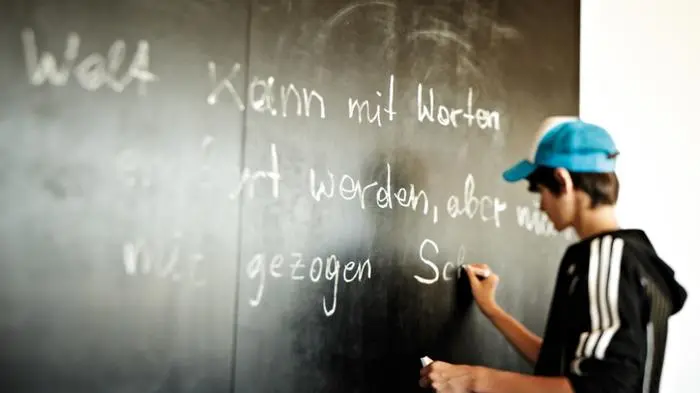 Wolf kann mit Worten
ört werden, aber
gezogen Sc